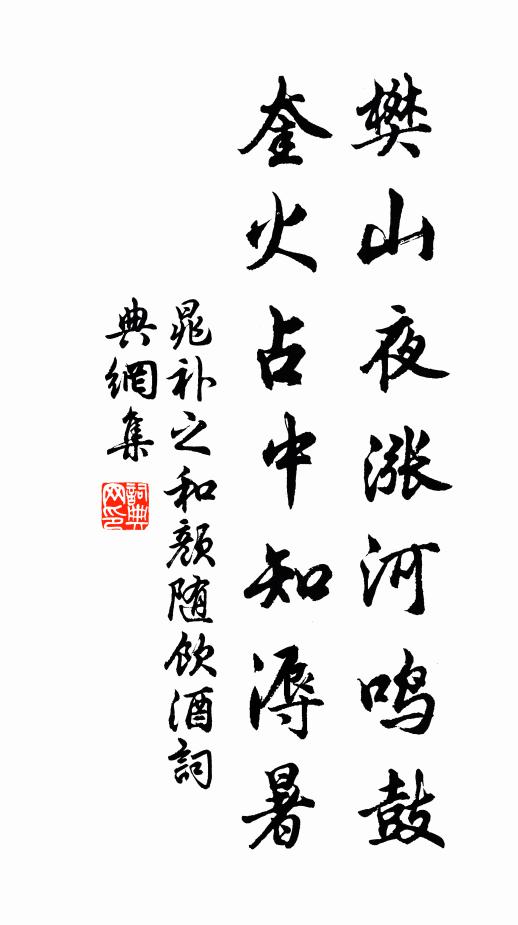 樊山夜涨河鸣鼓
奎火占中知溽暑
晁补之和颜随饮酒詞
典網集
詞典网印